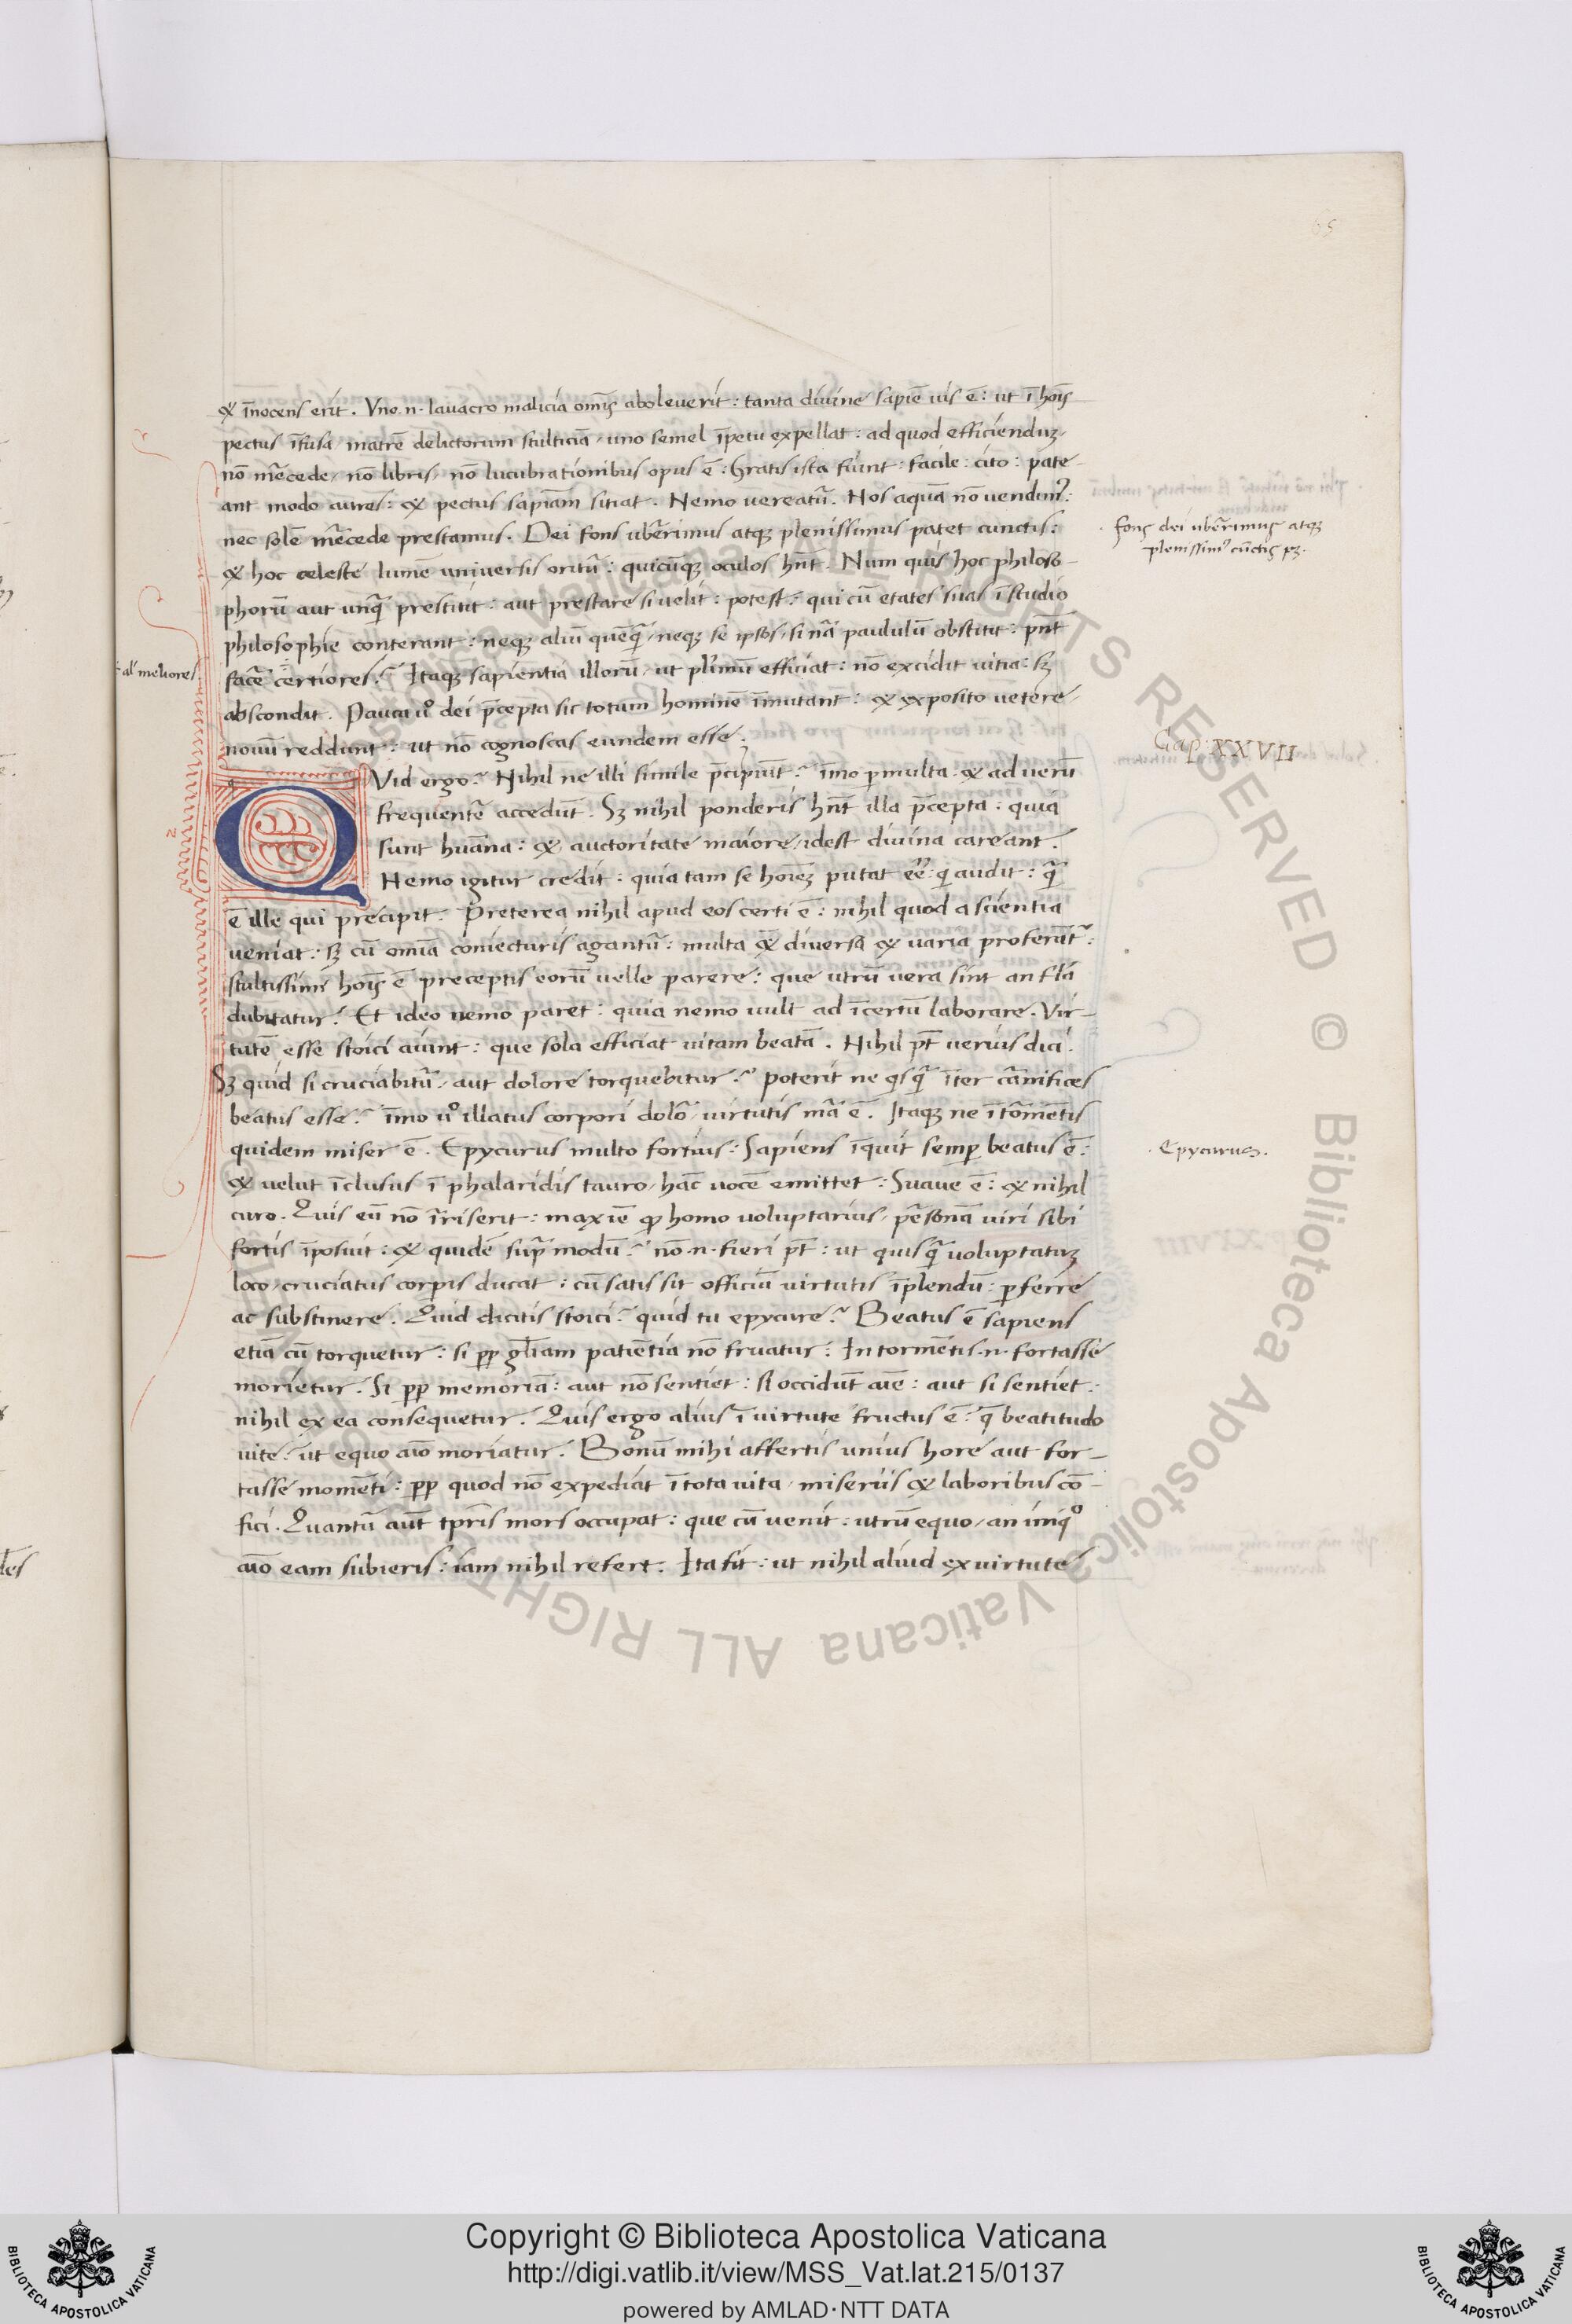 65
& īnocens erit. Vno .n. lauacro malicia omīs aboleuerit: tanta diuine sapiē uis ē: ut ī hoīs
pectus īfusa, matrē delictorum stulticiā, uno semel īpetu expellat: ad quod efficienduꝫ,
nō m̄cede, nō libris, nō lucubrationibus opus ē: Gratis ista fiunt: facile: cito: pate-
ant modo aures: & pectus sapiām sitiat. Nemo uereatur̄. Nos aquā nō uendimꝰ:
nec solē m̄cede prestamus. Dei fons ub̄rimus atqꝫ plenissimus patet cunctis:
fons dei ub̄rimus atqꝫ
plenissimꝰ cūctis pꝫ.
& hoc celeste lumē uniuersis oritur̄: quicūqꝫ oculos hn̄t. Num quis hoc philoso-
phorū aut unq̄ prestitit: aut prestare si uelit: potest: qui cū etates suas ī studio
philosophie conterant: neqꝫ aliū quēq̄, neqꝫ se ipsos, si nā paululū obstitit: pn̄t
al' meliores
facē certiores? Itaqꝫ sapientia illorū, ut plimū efficiat: nō excidit uitia: sꝫ
abscondit. Pauca uº dei p̄cepta sic totum hominē īmutant: & exposito uetere,
nouū reddunt: ut nō cognoscas eundem esse.
Cap. XXVII
QVid ergo? Nihil ne illi simile p̄cipiūt? īmo p̱multa: & ad uerū
frequentē accedūt. Sꝫ nihil ponderis hn̄t illa p̄cepta: quia
sunt huāna: & auctoritate maiore, idest diuina careant.
Nemo igitur credit: quia tam se hoīeꝫ putat eē: qi audit: q̄
ē ille qui precipit. Preterea nihil apud eos certi ē: nihil quod a scientia
ueniat: sꝫ cū omīa coniecturis agantur̄: multa & diuersa & uaria proferūt:
stultissimi hoīs ē preceptis eorū uelle parere: que utrū uera sint an fla
dubitatur? Et ideo nemo paret: quia nemo uult ad īcertū laborare. Vir-
tutē esse stoici aiunt: que sola efficiat uitam beatā. Nihil pt̄ uerius dici.
Sꝫ quid si cruciabitur̄, aut dolore torquebitur? poterit ne qisq̄ īter cānifices
beatus esse? īmo uº illatus corpori dolō, uirtutis mā ē. Itaqꝫ ne ī tōmētis
quidem miser ē. Epycurus multo fortius: Sapiens īquit semp̱ beatus ē:
Epycurus.
& uelut īclusus ī phalaridis tauro, hāc uocē emittet: Suaue ē: & nihil
curo. Quis eū nō īriserit: maxīe qꝓ homo uoluptarius, p̄sonā uiri sibi
fortis īposuit: & quidē sup̄ modū? nō .n. fieri pt̄: ut quisq̄ uoluptatuꝫ
loco, cruciatus corpis ducat: cū satis sit officiū uirtutis īplendū: p̱ferre
ac substinere. Quid dicitis stoici? quid tu epycure? Beatus ē sapiens
etiā cū torquetur: si pp̱ gl̄iam patiētia nō fruatur. In tormētis .n. fortasse
morietur. Si pp̱ memoriā: aut nō sentiet: si occidūt aīe: aut si sentiet:
nihil ex ea consequetur. Quis ergo alius ī uirtute fructus ē? q̄ beatitudo
uite? ut equo aīo moriatur. Bonū mihi affertis unius hore aut for-
tasse momēti: pp̱ quod nō expediat ī tota uita, miseriis & laboribus cō-
fici. Quantū aūt tp̄ris mors occupat: que cū uenit: utrū equo, an iniqº
aīo eam subieris: iam nihil refert. Ita fit: ut nihil aliud ex uirtute
BIBLIOTECA APOSTOLICA VATICANA
Copyright © Biblioteca Apostolica Vaticana
http://digi.vatlib.it/view/MSS_Vat.lat.215/0137
powered by AMLAD·NTT DATA
BIBLIOTECA APOSTOLICA VATICANA